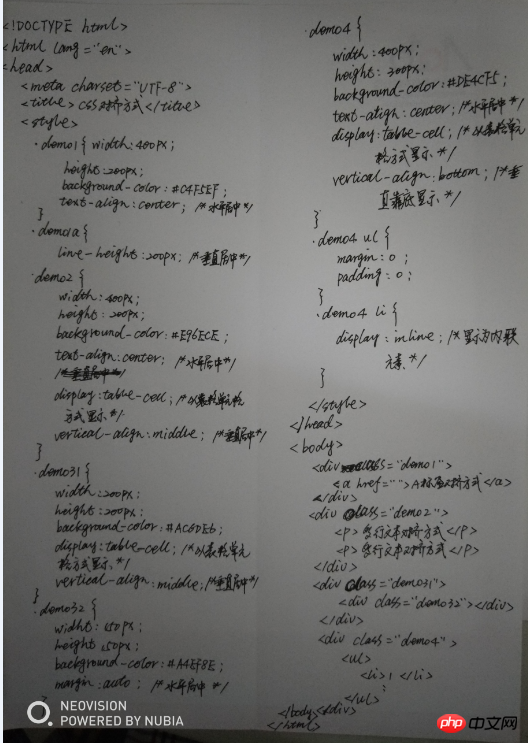 <!DOCTYPE html>
<html lang="en">
<head>
<meta charset="UTF-8">
<title>CSS对齐方式</title>
<style>
.demo1{ width:400px;
height:200px;
background-color:#C4F5EF;
text-align:center; /*水平居中*/
}
.demo1a{
line-height:200px; /*垂直居中*/
.demo2{
width:400px;
height:200px;
background-color:#E96ECE;
text-align:center; /*水平居中*/
display:table-cell; /*以表格单元格
方式显示.*/
vertical-align:middle; /*垂直居中*/
}
.demo31{
width:200px;
height:200px;
background-color:#AC6DE6;
display:table-cell; /*以表格单元
格方式显示.*/
vertical-align:middle; /*垂直居中*/
}
.demo32{
widht:150px;
height:150px;
background-color:#A4EF8E;
margin:auto; /*水平居中*/
.demo4{
width:400px;
height:300px;
background-color:#DE4CF5;
text-align:center; /*水平居中*/
display:table-cell; /*以表格单元
格方式显示.*/
vertical-align:bottom; /*垂
直靠底显示.*/
}
.demo4 ul{
margin:0;
padding:0;
}
.demo4 li{
display:inline; /*显示为内联
元素.*/
}
</style>
</head>
<body>
<div class="demo1">
<a href="">A标签对齐方式</a>
</div>
<div class="demo2">
<P>多行文本对齐方式</P>
<P>多行文本对齐方式</P>
</div>
<div class="demo31">
<div class="demo32"></div>
</div>
<div class="demo4">
<ul>
<li>1</li>
</ul>
</body></div>
</html>
NEOVISION
POWERED BY NUBIA
php中文网